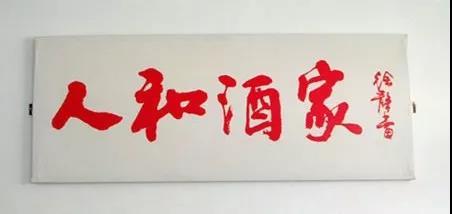 人和酒家
徐静